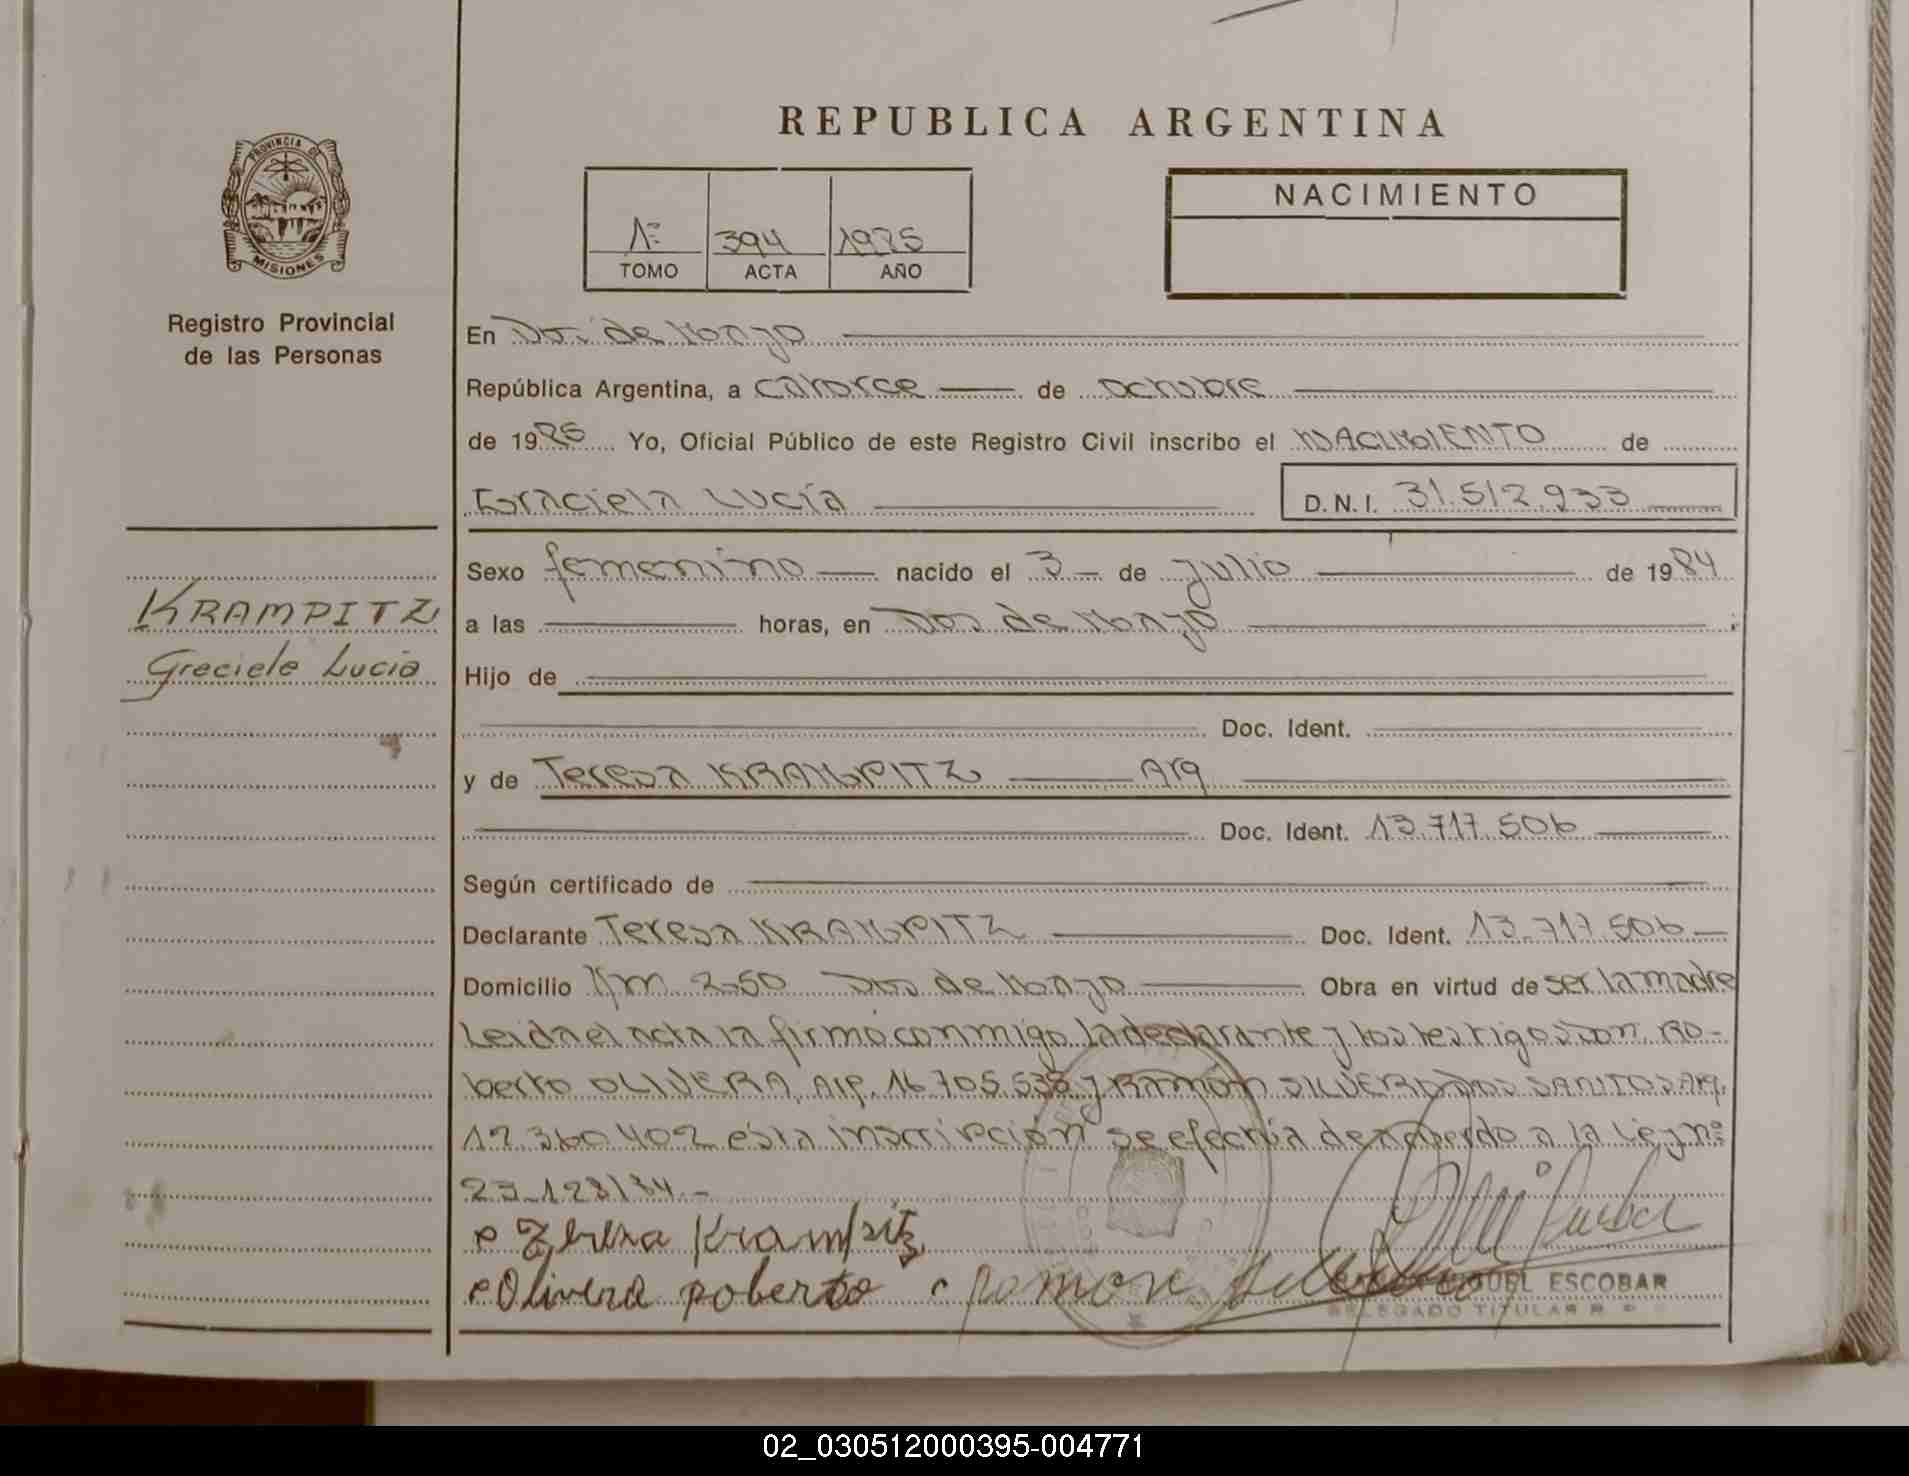 REPUBLICA ARGENTINA
PROVINCIA DE
MISIONES
Registro Provincial
de las Personas
1º 394 1985
TOMO ACTA AÑO
NACIMIENTO
En Dos de Mayo
República Argentina, a catorce de octubre
de 1985 Yo, Oficial Público de este Registro Civil inscribo el NACIMIENTO de
Graciela Lucía D.N.I. 31.512.933
Sexo femenino nacido el 3 de julio de 1984
KRAMPITZ
a las horas, en Dos de Mayo
Graciela Lucia
Hijo de
Doc. Ident.
y de Teresa KRAMPITZ Arg
Doc. Ident. 13.717.506
Según certificado de
Declarante Teresa KRAMPITZ Doc. Ident. 13.717.506
Domicilio Km 250 Dos de Mayo Obra en virtud de ser la madre
Leida el acta la firmo conmigo la declarante y los testigos son Ro-
berto OLIVERA, Arg. 16.705.538 y RAMÓN SILVERO DOS SANTOS Arg.
12.360.402 esta inscripción se efectúa de acuerdo a la Ley nº
23.128/84.-
Teresa Krampitz
Olivera Roberto Ramon
MIGUEL ESCOBAR
DELEGADO TITULAR R. P.
02_030512000395-004771